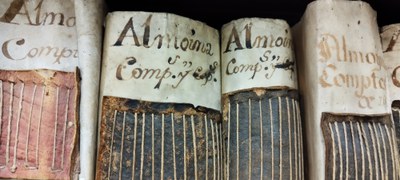 Almo
Comp
Almoina
Comp.s y
Almoin
Comp.s y
Almoy
Compte